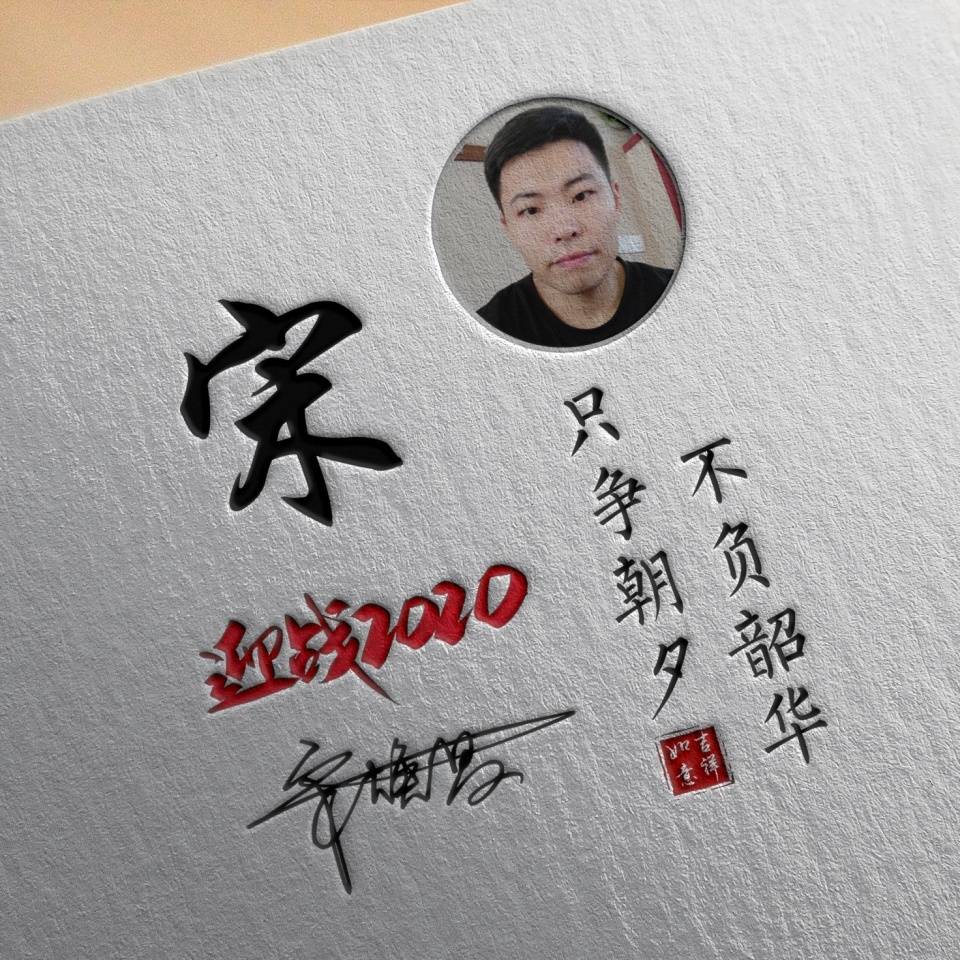 宋
迎战2020
只争朝夕
不负韶华
吉祥
如意